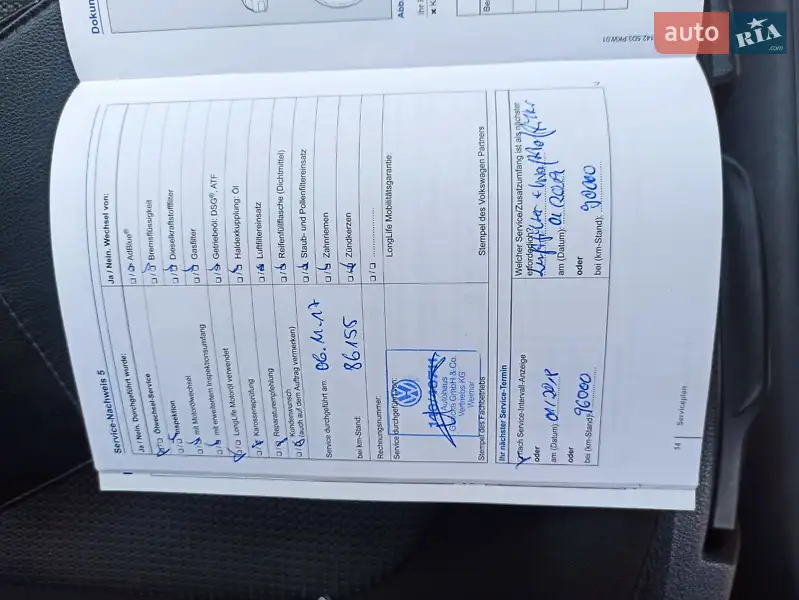 auto RIA .com
Dokun
Abb.
142.5D3.PKW.01
Service-Nachweis 5
Ja / Nein. Durchgeführt wurde:
Ölwechsel-Service
Inspektion
mit Motorölwechsel
mit erweitertem Inspektionsumfang
LongLife Motoröl verwendet
Karosserieprüfung
Reparaturempfehlung
Kundenwunsch
(auch auf dem Auftrag vermerken)
Service durchgeführt am: 06.11.17
bei km-Stand: 86155
Rechnungsnummer:
Service durchgeführt von:
Autohaus
GmbH & Co.
Vertriebs KG
Weimar
Stempel des Fachbetriebs
Ja / Nein. Wechsel von:
AdBlue®
Bremsflüssigkeit
Dieselkraftstofffilter
Gasfilter
Getriebeöl: DSG®, ATF
Haldexkupplung: Öl
Luftfiltereinsatz
Reifenfüllflasche (Dichtmittel)
Staub- und Pollenfiltereinsatz
Zahnriemen
Zündkerzen
LongLife Mobilitätsgarantie:
Stempel des Volkswagen Partners
Ihr nächster Service-Termin
nach Service-Intervall-Anzeige
oder
am (Datum):
oder
bei (km-Stand): 96000
Welcher Service/Zusatzumfang ist als nächster
erforderlich?
Luftfilter
am (Datum):
oder
bei (km-Stand): 90000
14 Serviceplan